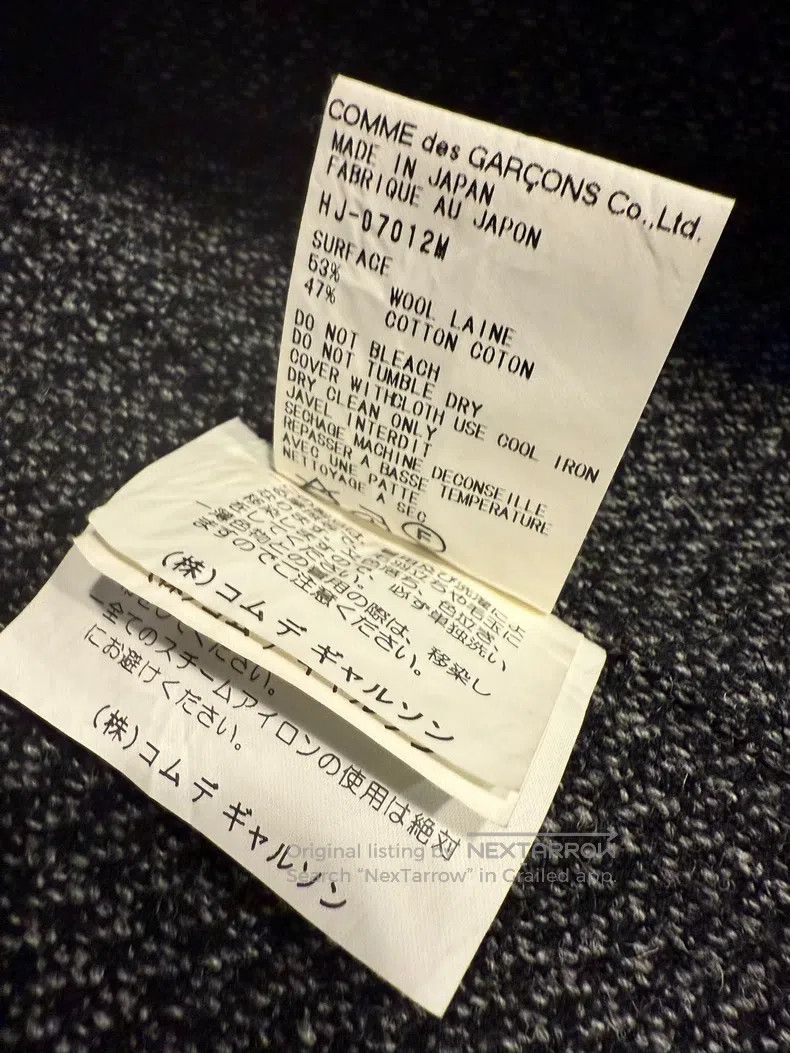 COMME des GARÇONS Co.,Ltd.
MADE IN JAPAN
FABRIQUE AU JAPON
HJ-07012M
SURFACE
53% WOOL LAINE
47% COTTON COTON
DO NOT BLEACH
DO NOT TUMBLE DRY
COVER WITHCLOTH USE COOL IRON
DRY CLEAN ONLY
JAVEL INTERDIT
SECHAGE MACHINE DECONSEILLE
REPASSER A BASSE TEMPERATURE
AVEC UNE PATTE
NETTOYAGE A SEC
F
必ず単独洗い
してください。
着用の際は、移染し
ますのでご注意ください。
(株)コム デ ギャルソン
してください。
全てのスチームアイロンの使用は絶対
にお避けください。
(株)コム デ ギャルソン
Original listing by NEXTARROW
Search “NexTarrow” in Grailed app.